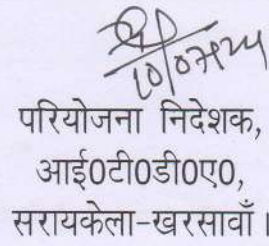 10/07/24
परियोजना निदेशक,
आई0टी0डी0ए0,
सरायकेला-खरसावाँ।